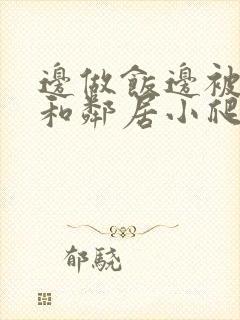 邊做飯邊被
和鄰居小爬
郁驍